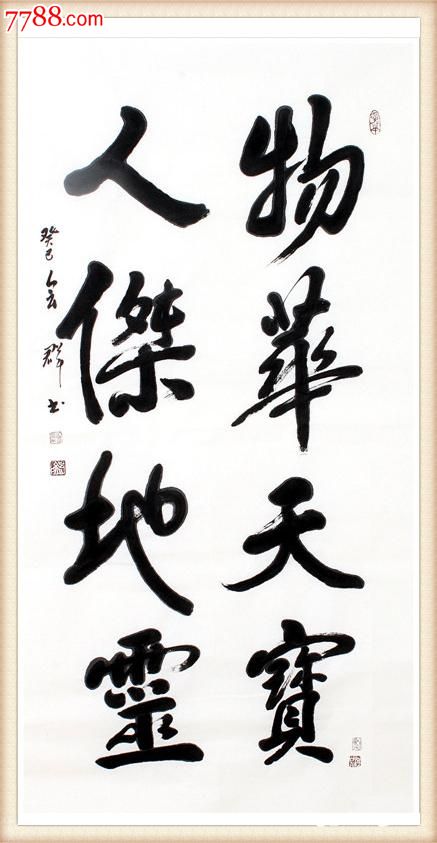 7788.com
物華天寶
人傑地靈
癸巳会群书